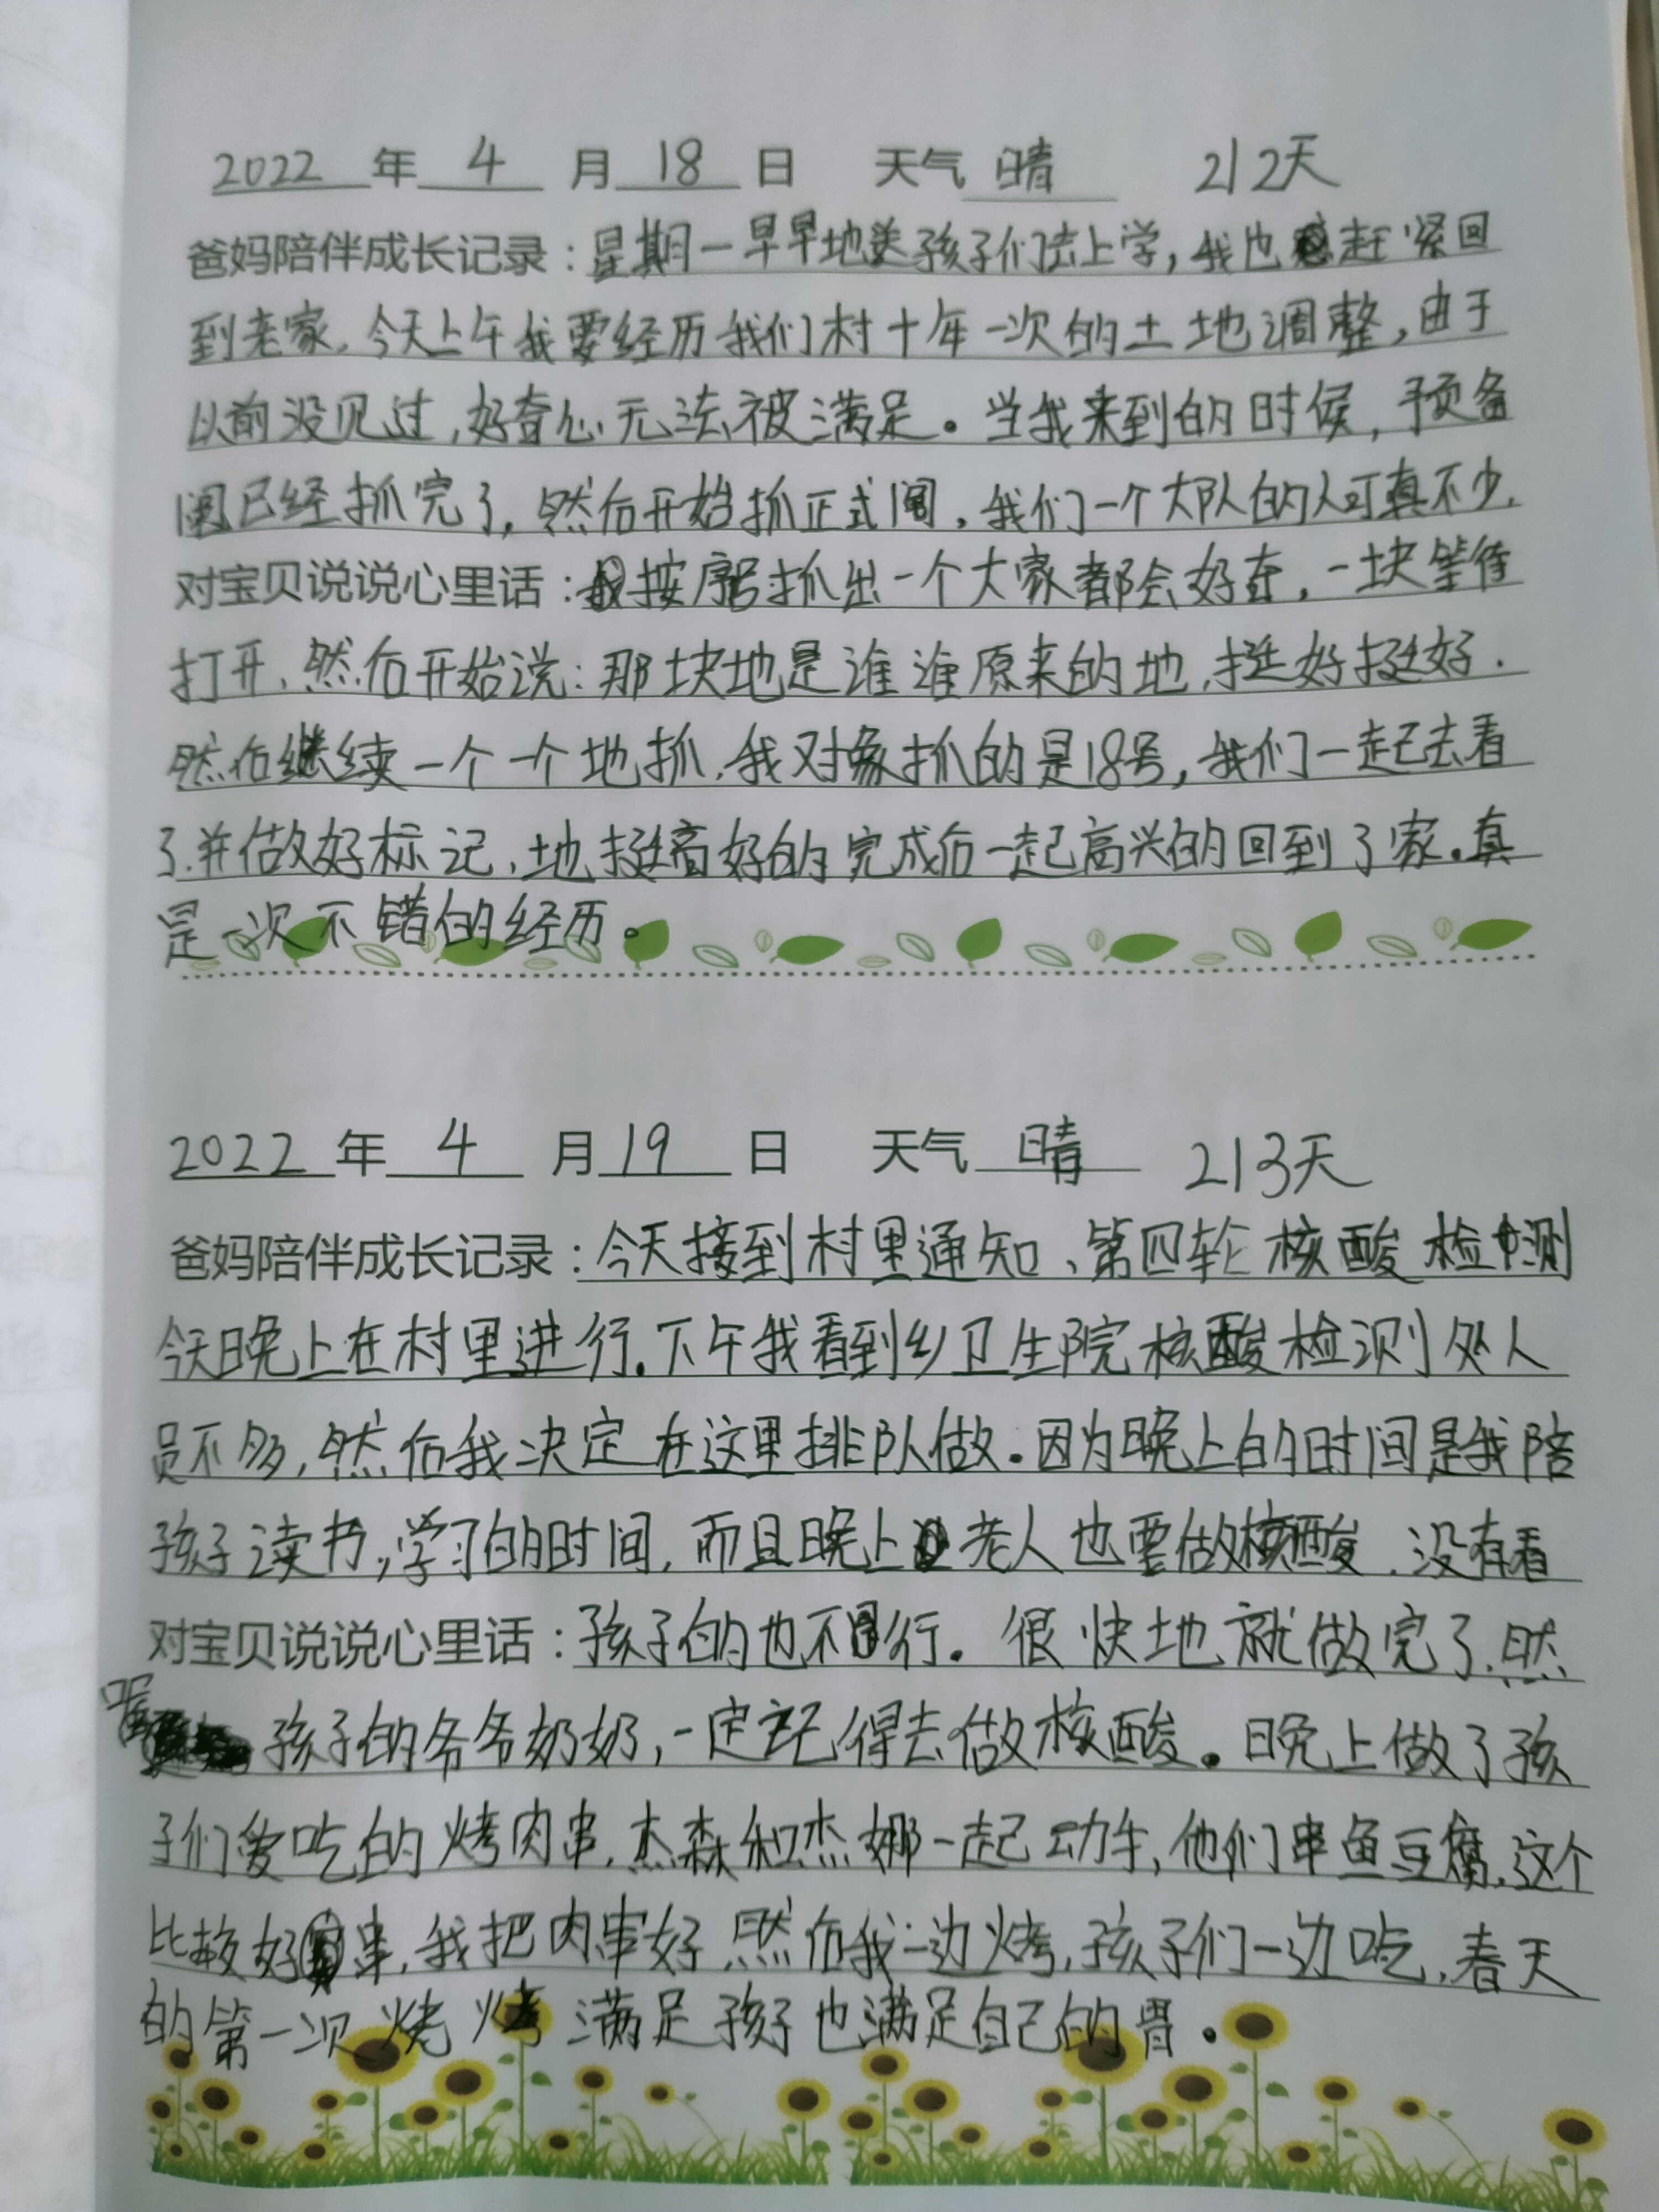 2022 年 4 月 18 日 天气 晴 212天
爸妈陪伴成长记录：星期一早早地送孩子们去上学，我也赶紧回
到老家，今天上午我要经历我们村十年一次的土地调整，由于
以前没见过，好奇心无法被满足。当我来到的时候，预备
阄已经抓完了，然后开始抓正式阄，我们一个大队的人可真不少，
对宝贝说说心里话：按序号抓出一个大家都会好奇，一块等待
打开，然后开始说：那块地是谁谁原来的地，挺好挺好．
然后继续一个一个地抓，我对象抓的是18号，我们一起去看
了.并做好标记，地挺好的完成后一起高兴的回到了家。真
是一次不错的经历。
2022 年 4 月 19 日 天气 晴 213天
爸妈陪伴成长记录：今天接到村里通知、第四轮核酸检测
今天晚上在村里进行．下午我看到乡卫生院核酸检测处人
员不多，然后我决定在这里排队做。因为晚上的时间是我陪
孩子读书，学习的时间，而且晚上老人也要做核酸，没有看
对宝贝说说心里话：孩子的也不行。很快地就做完了，然
孩子的爷爷奶奶，一定记得去做核酸。晚上做了孩
子们爱吃的烤肉串，杰森和杰娜一起动手，他们串鱼豆腐，这个
比较好串，我把肉串好，然后我一边烤，孩子们一边吃，春天
的第一次烧烤满足孩子也满足自己的胃。